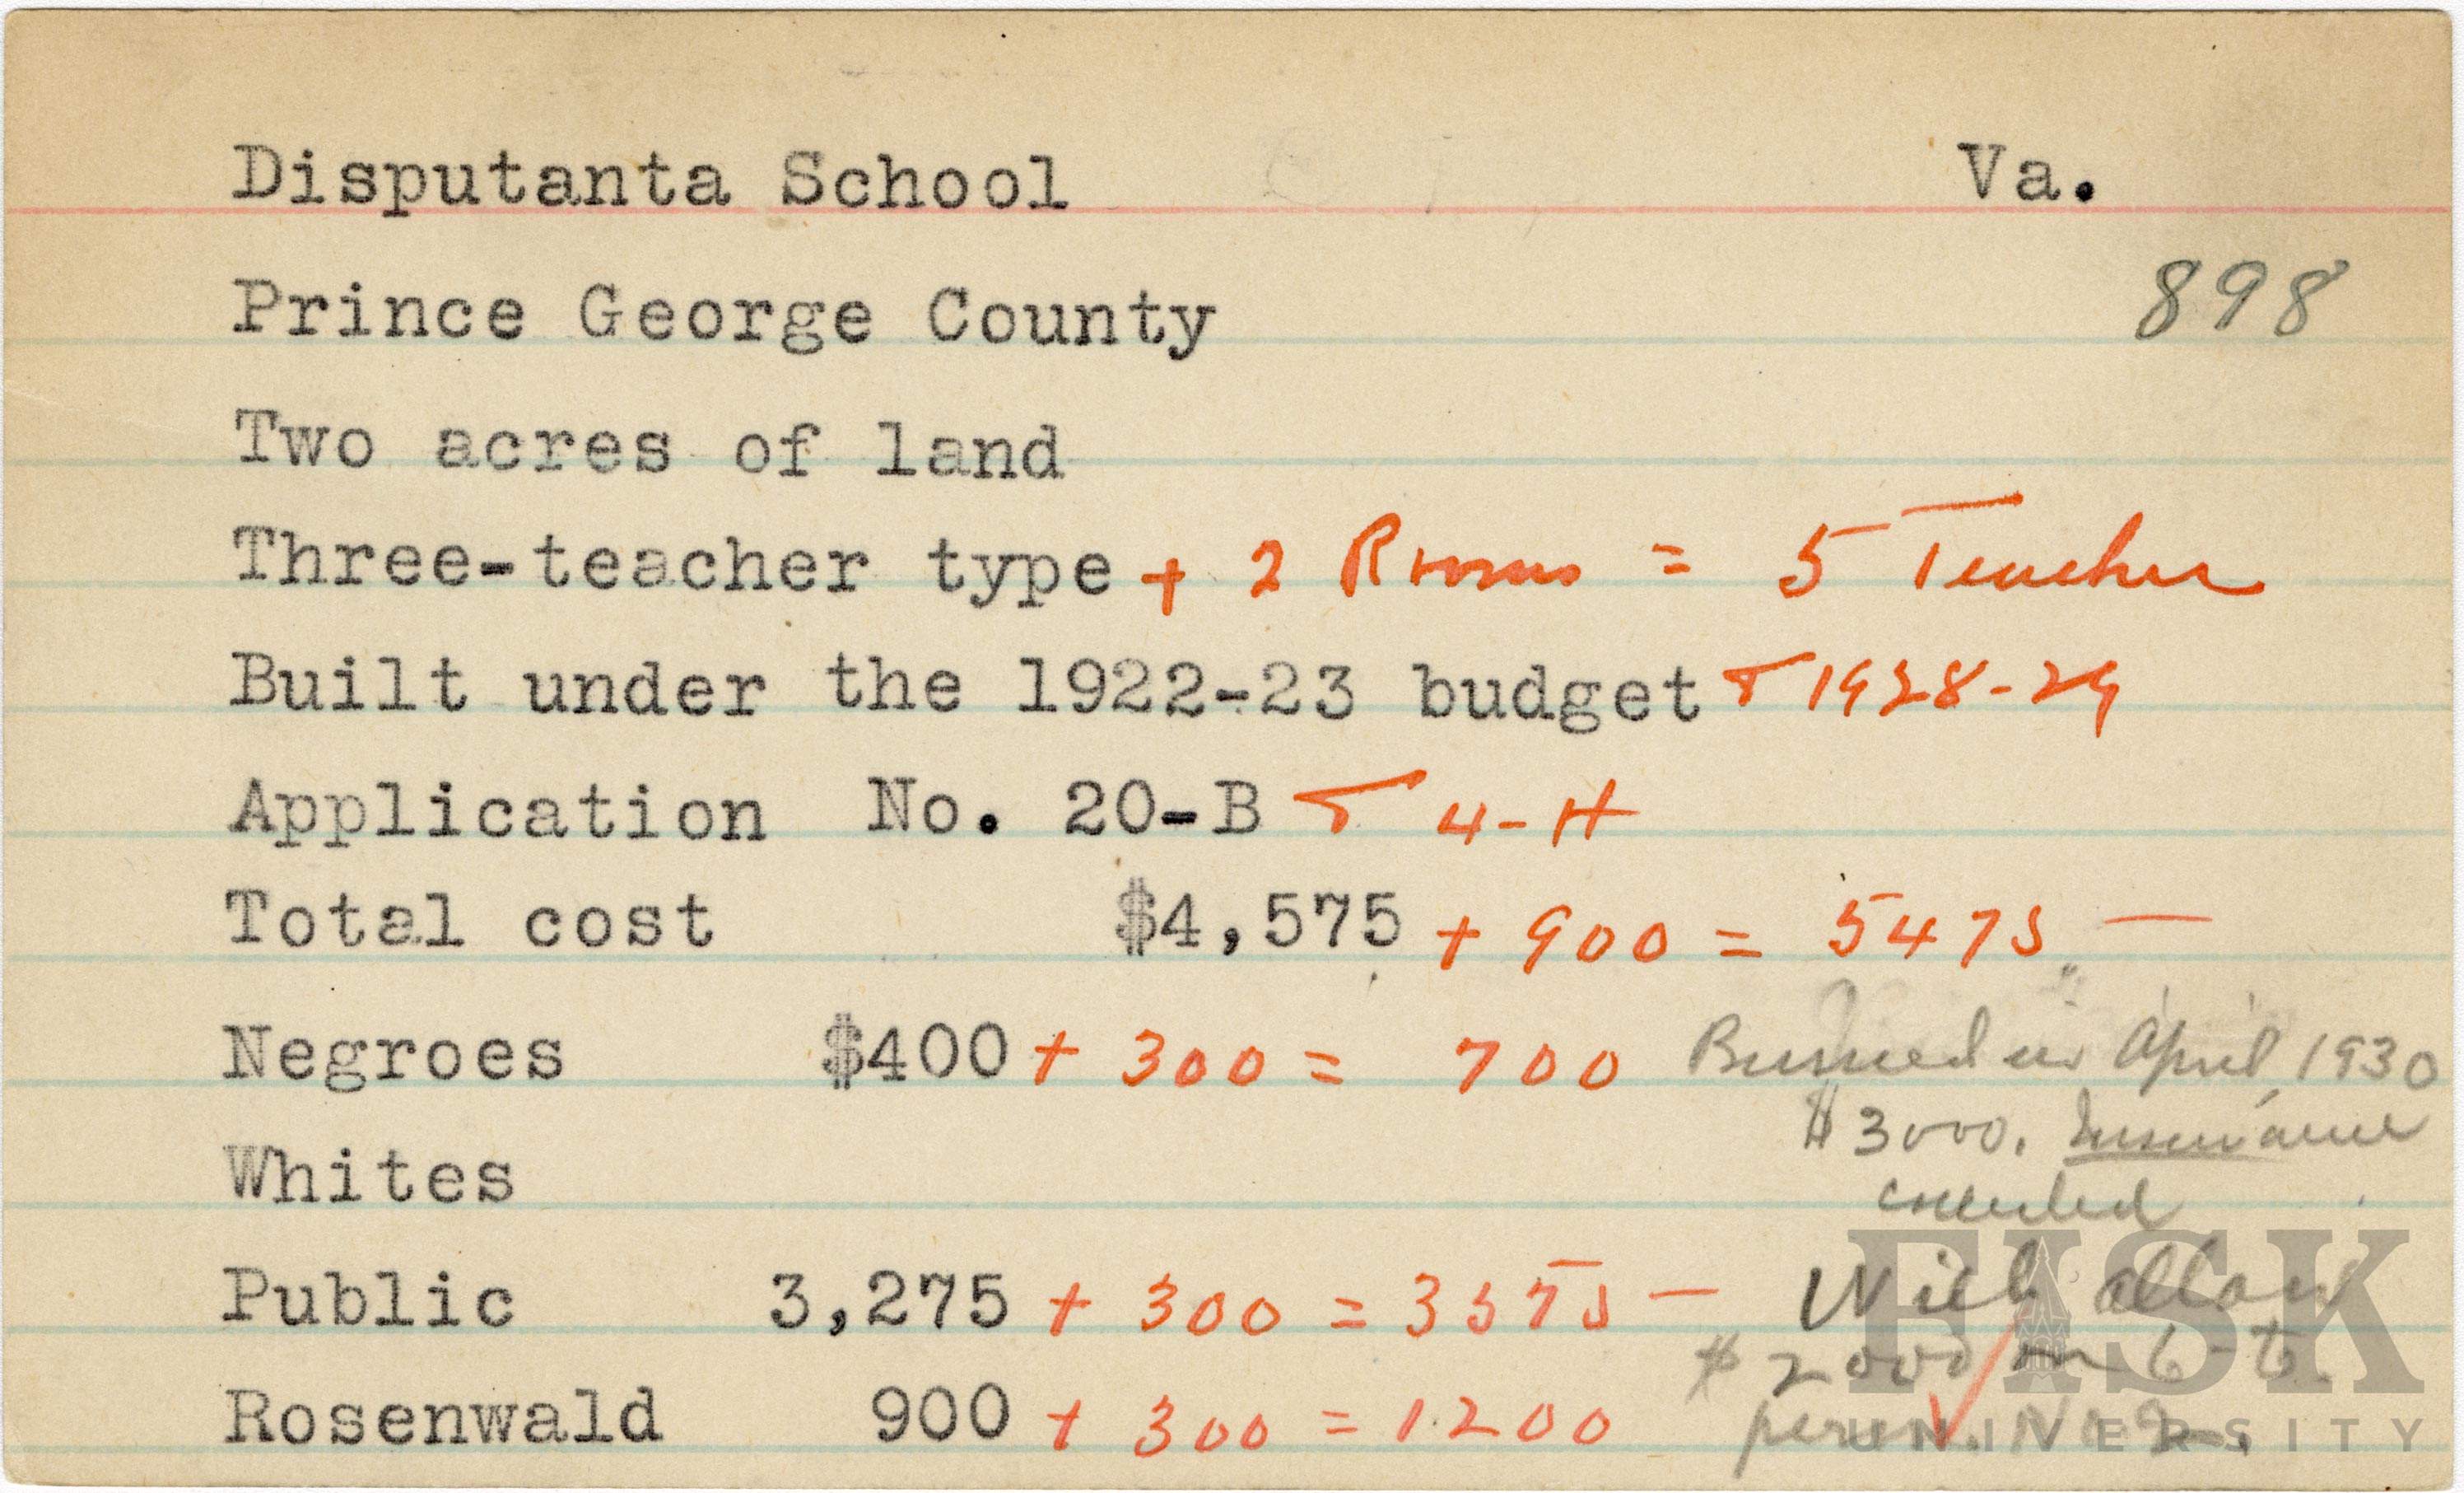 Disputanta School Va.
898
Prince George County
Two acres of land
Three-teacher type + 2 Rooms = 5 Teacher
Built under the 1922-23 budget & 1928-29
Application No. 20-B & 4-H
Total cost $4,575 + 900 = 5475 —
Negroes $400 + 300 = 700
Burned in April, 1930
$3000. Insurance
Whites
Public 3,275 + 300 = 3575 —
Will allow
$2000 on 6-t.
Rosenwald 900 + 300 = 1200
FISK
UNIVERSITY